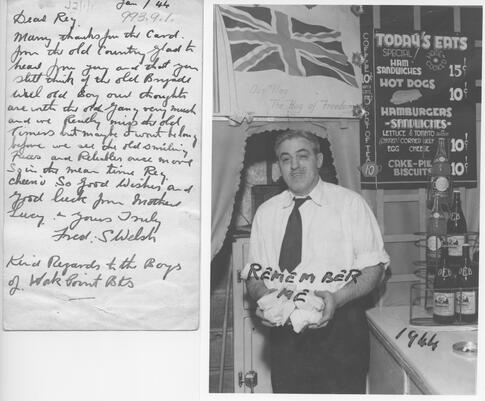 Jan / 44
993.9.1.
Dear Reg.
Many thanks for the Card.
from the old Country glad to
hear from you and that you
still think of the old Brigade
Well old Boy our thoughts
are with the old Gang very much
and we Really miss the old
Timers but maybe it wont be long
before we see the old smiling
faces and Rebuttles once more
So in the mean time Reg.
cheerio So Good Wishes and
good luck from Mother
Lucy & Yours Truly
Fred. S Welsh
Kind Regards to the Boys
of Oak Point Bts
Our Flag
The Flag of Freedom
TODAY'S EATS
SPECIAL
HAM
SANDWICHES 15¢
HOT DOGS 10¢
HAMBURGERS
-SANDWICHES-
LETTUCE & TOMATO
CORNED BEEF
EGG CHEESE 10¢
CAKE-PIE
BISCUITS 10¢
COFFEE
POT OF TEA
10
REMEMBER
ME
1944